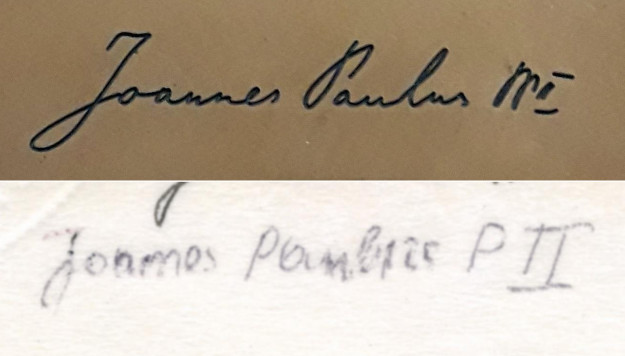 Joannes Paulus PP I
Joannes Paulus P II